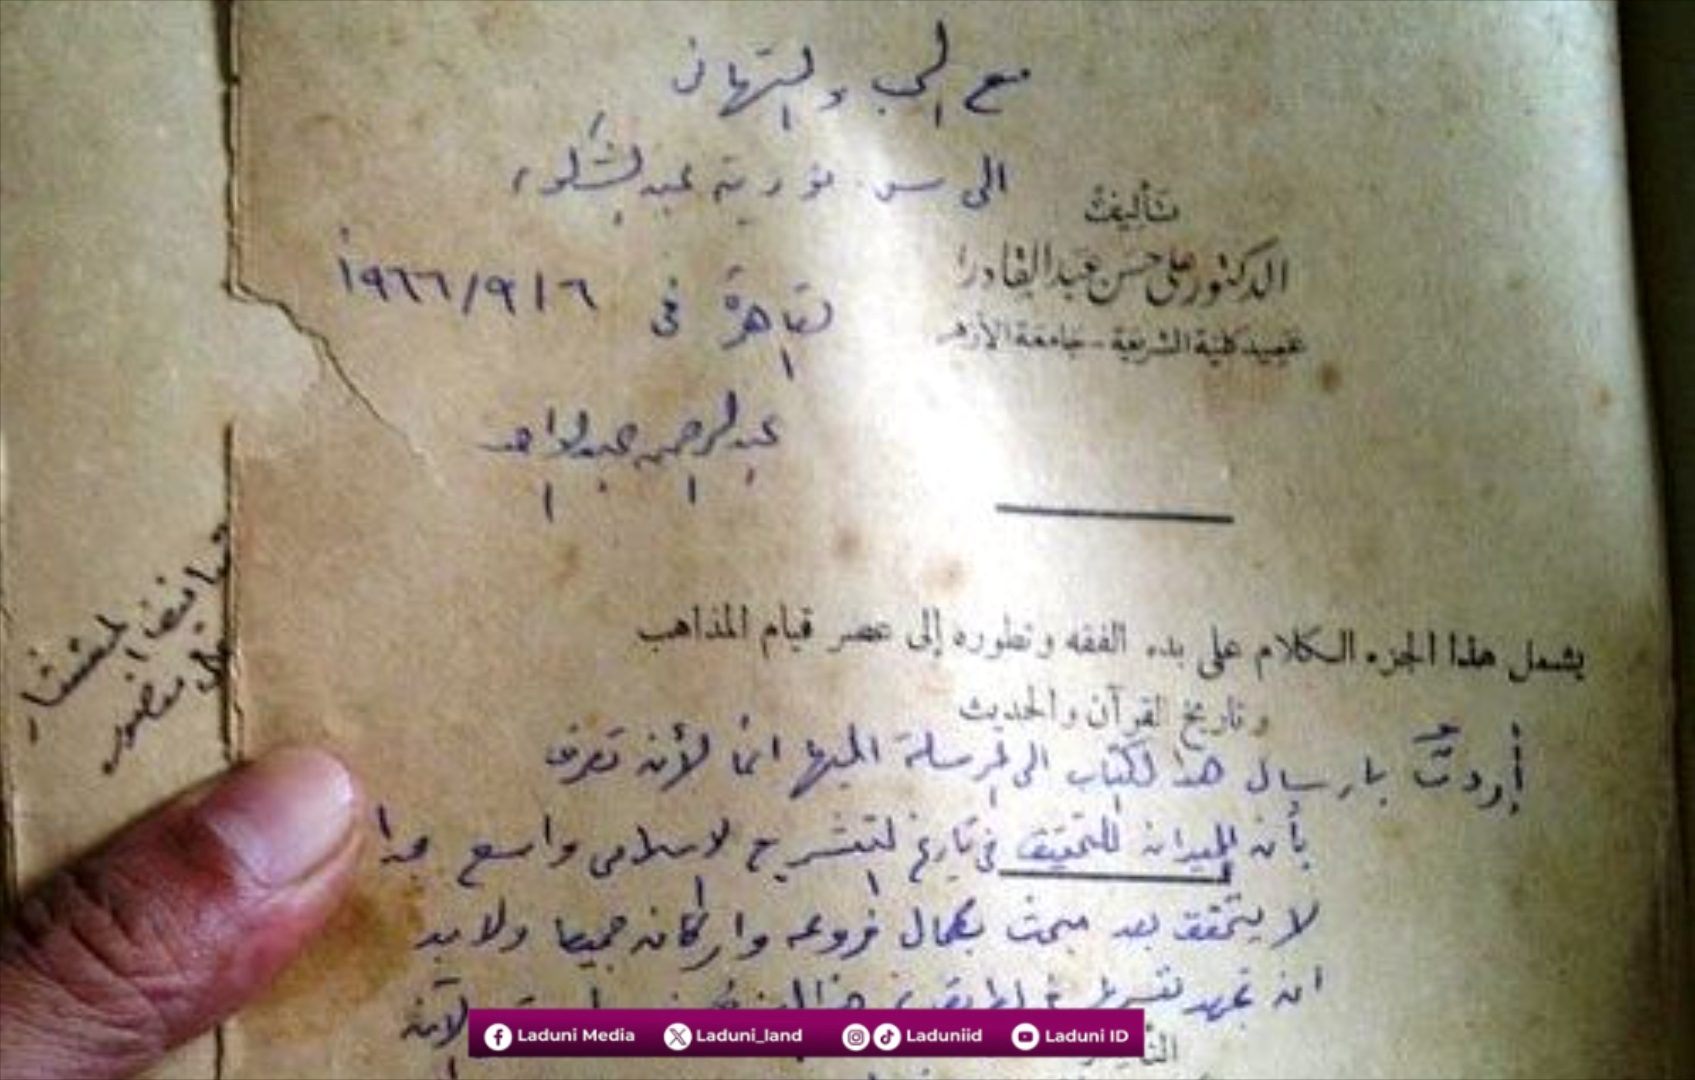 مع الحب والتهاني
الى س. نورية عبد الشكور
تأليف
الدكتور على حسن عبد القادر
عميد كلية الشريعة - جامعة الأزهر
القاهرة فى ١٩٦٦/٩/١٦
عبد الرحمن عبد الواحد
يشمل هذا الجزء الكلام على بدء الفقه وتطوره إلى عصر قيام المذاهب
وتاريخ القرآن والحديث
أردت بارسال هذا الكتاب الى المرسلة اليها انما لأن تعرف
بأن الميدان للتحقيق في تاريخ التشريع الاسلامى واسع جدا
لا يتحقق بعد مبحث بكمال فروعه واركانه جميعا ولابد
ان تجهد نفسها
Laduni Media Laduni_land Laduniid Laduni ID